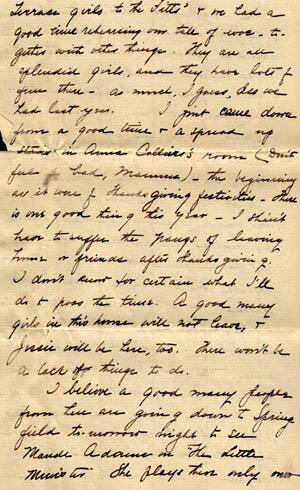 Terrace girls to the Pitts' & we had a
good time rehearsing our tale of woe - to-
gether with other things. They are all
splendid girls, and they have lots of
fun there - as much, I guess, as we
had last year. I just came down
from a good time & a spread up
stairs in Anna Collier's room (Don't
feel bad, Mamma) - the beginning
as it were of Thanksgiving festivities. There
is one good thing this year - I shan't
have to suffer the pangs of leaving
home or friends after Thanksgiving.
I don't know for certain what I'll
do to pass the time. A good many
girls in this house will not leave, &
Jessie will be here, too. There won't be
a lack of things to do.
I believe a good many people
from here are going down to Spring
field to-morrow night to see
Maude Adams in The Little
Minister. She plays there only one